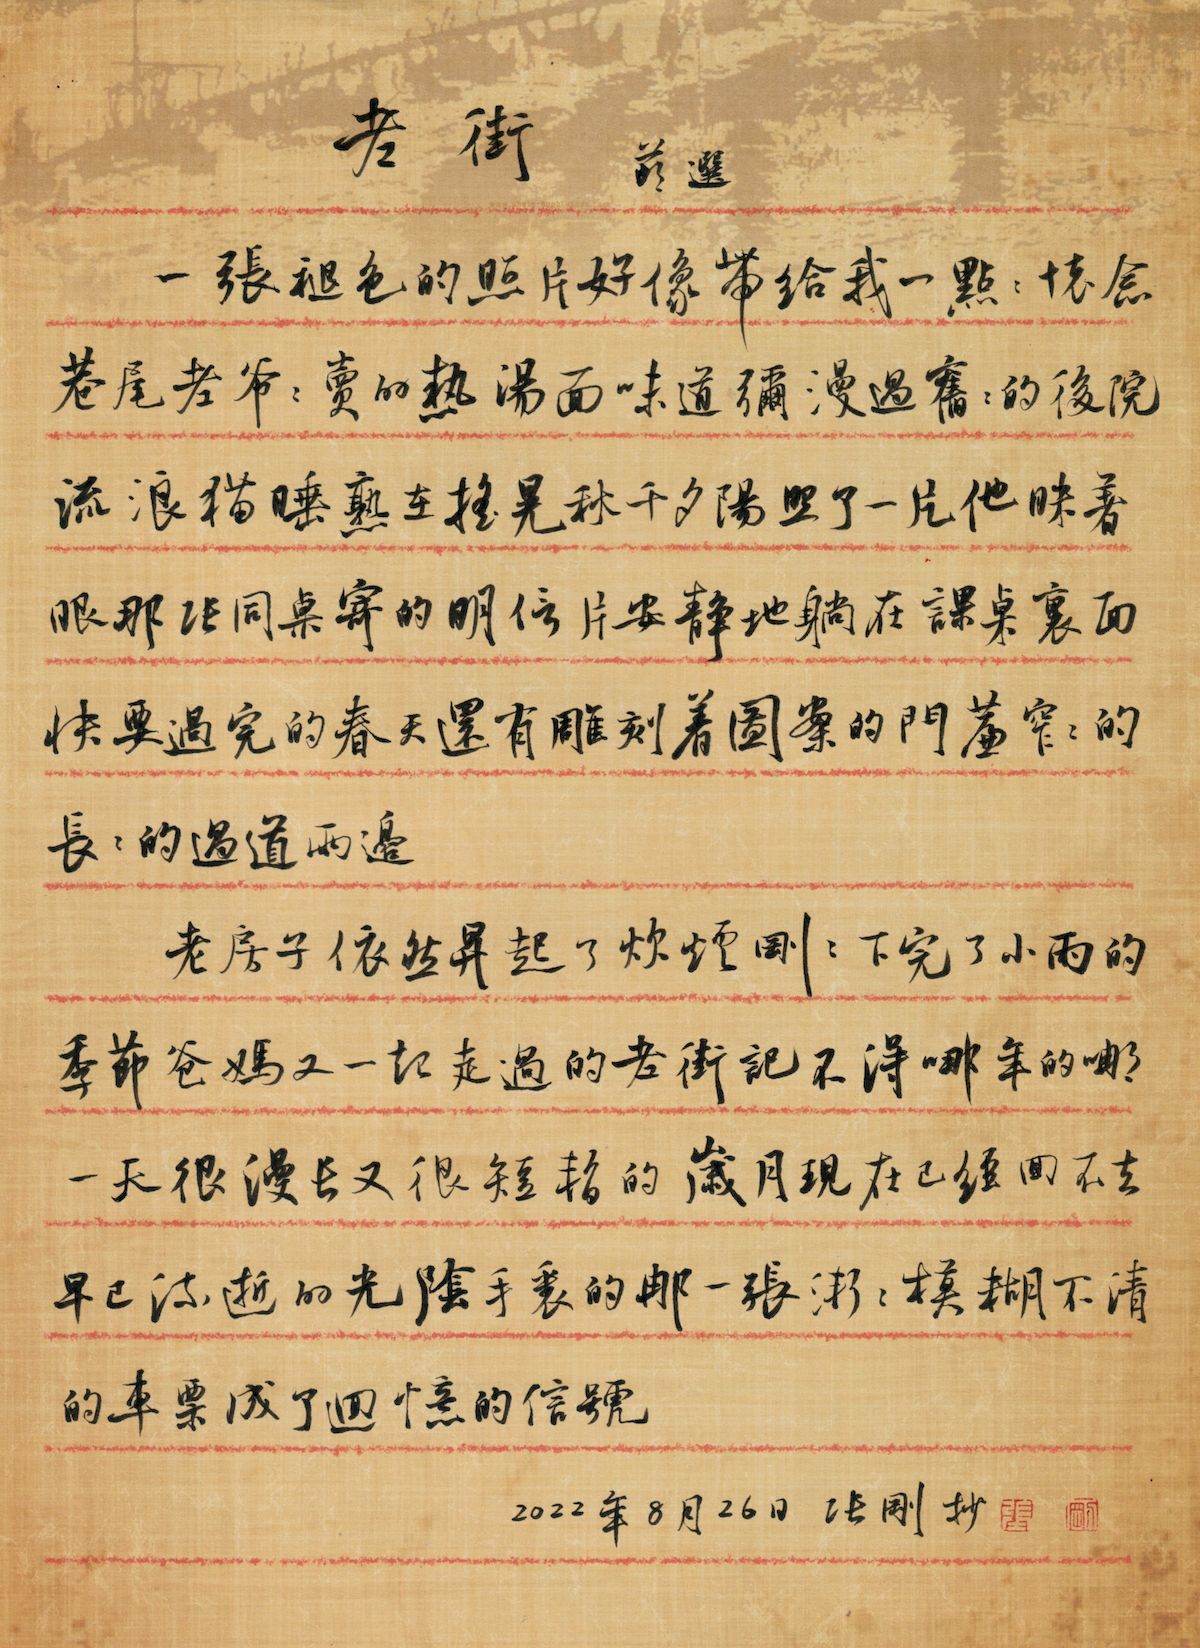 老街 節選
一張褪色的照片好像帶給我一點：懷念
巷尾老爺：賣的熱湯面味道彌漫過舊：的後院
流浪猫睡熟在搖晃秋千夕陽照了一片他眯著
眼那张同桌寄的明信片安靜地躺在課桌裏面
快要過完的春天還有雕刻着圖案的門蓙窄：的
長：的過道兩邊
老房子依然昇起了炊煙剛：下完了小雨的
季節爸媽又一起走過的老街記不得哪年的哪
一天很漫长又很短暫的歲月現在已經回不去
早已流逝的光陰手裏的那一張漸：模糊不清
的車票成了迴憶的信號
2022年8月26日 张剛抄